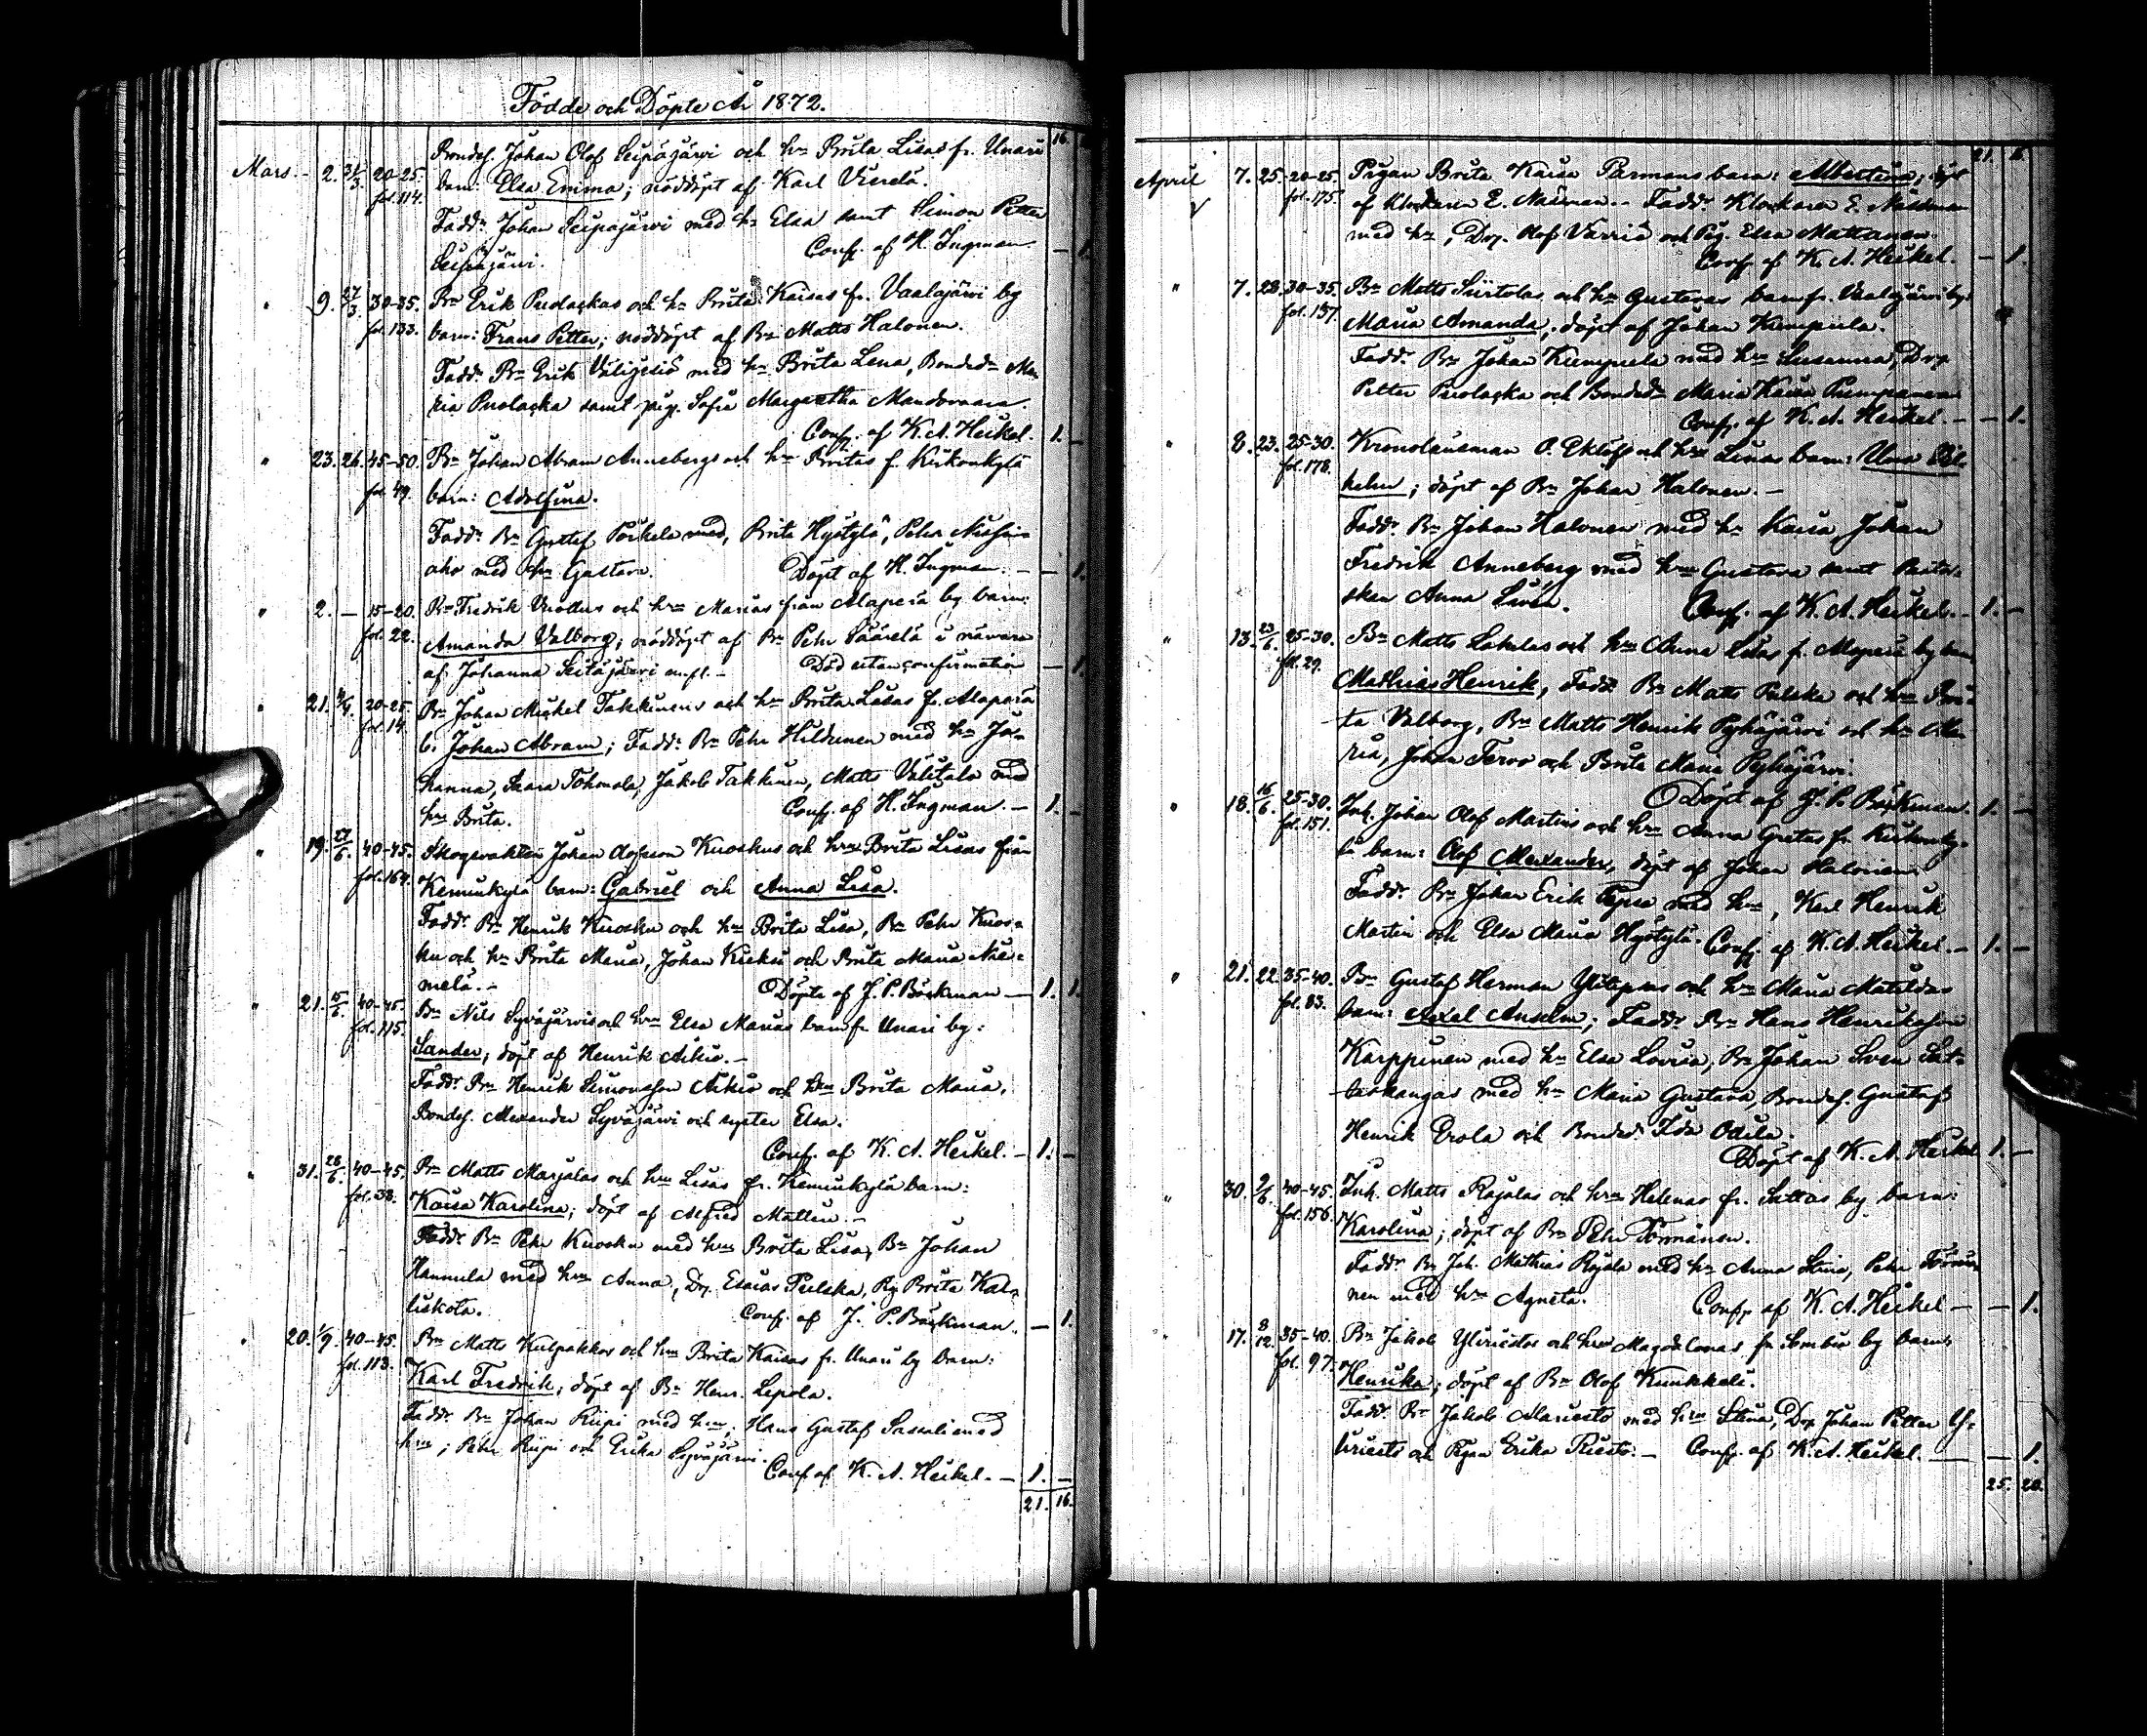 Födde och Döpte År 1872.
16.
Bondes. Johan Olof Seipäjärvi och hn Brita Lisas fr. Unari
Mars. 2. 31/3 20-25. barn: Elsa Emma; nöddöpt af Karl Vierelä.
fol. 114.
Fadd: Johan Seipäjärvi med hn Elsa samt Simon Petter
Seipäjärvi. Conf. af H. Ingman — 1.
" 9. 27/3 30-35. Bn Erik Puolackas och hn Brita Kaisas fr. Vaalajärvi by
fol. 133. barn: Frans Petter; nöddöpt af Bn Matts Halonen.
Fadd: Bn Erik Välijesiö med hn Brita Lena, Bonded. Ma
ria Puolacka samt pig. Sofia Margaretha Mandovaara.
Conf. af K. A. Heikel. 1. —
" 23. 26. 45-50. Bn Johan Abram Annebergs och hn Britas f. Kirkonkylä
fol. 49. barn: Adolfina.
Fadd: Bn Gustaf med, Brita Hyötylä, Petter
aho med hn Gustava. Döpt af H. Ingman. — — 1.
" 2. — 15-20. Bn Fredrik och hn Marias från Alaperä by barn:
fol. 22. Amanda Valborg; nöddöpt af Bn Pehr Säärelä i närvaro
af Johanna m.fl. — Död utan confirmation — 1.
" 21. 4/4. 20-25. Bn Johan Mickel Takkinens och hn Brita Lisas fr. Alaperä
fol. 14. b. Johan Abram; Fadd: Bn Pehr Hildunen med hn Jo-
hanna, Saara Tohmola, Jakob Takkinen, Matts Välitalo med
hn Brita. Conf. af H. Ingman. — 1. —
" 19. 27/6. 40-45. Skogsvakten Johan Olofsson Kuoskus och hn Brita Lisas från
fol. 164. Kemikylä barn: Gabriel och Anna Lisa.
Fadd: Bn Henrik Kuosku och hn Brita Lisa, Bn Pehr Kuos-
ku och hn Brita Maria, Johan och Brita Maria Nie-
melä. — Döpte af J. P. Bäckman — 1. 1.
" 21. 15/6. 40-45. Bn Nils Syväjärvis och hn Elsa Marias barn fr. Unari by:
fol. 115. Sander; döpt af Henrik Aikio. —
Fadd: Bn Henrik Simonsson Aikio och hn Brita Maria,
Bondes. Alexander Syväjärvi och syster Elsa.
Conf. af K. A. Heikel. — 1. —
" 31. 28/6. 40-45. Bn Matts Marjalas och hn Lisas fr. Kemikylä barn:
fol. 38. Kaisa Karolina; döpt af Alfred Mattlin. —
Fadd: Bn Pehr Kuosku med hn Brita Lisa, Bn Johan
Hannula med hn Anna, Drg. Esaias Pulska, Pig. Brita Kal-
liskota. Conf. af J. P. Bäckman. — 1.
" 20. 1/9. 40-45. Bn Matts Kulpakkos och hn Brita Kaisas fr. Unari by barn:
fol. 113. Karl Fredrik; döpt af Bn Henr. Lepola.
Fadd: Bn Johan Riipi med hn; Hans Gustaf Sassali med
hn; Petter Riipi och Erika Syväjärvi.
Conf. af K. A. Heikel. — 1. —
21. 16.
21. 16.
April 7. 25. 20-25. Pigan Brita Kaisa Pärmans barn: Albertina; döpt
fol. 175. af Klockaren E. Näsman. — Fadd: Klockaren E. Näsman
med hn; Drg. Olof Värriö och Pig. Elsa Mattanen.
Conf. af K. A. Heikel. — 1.
" 7. 28. 30-35. Bn Matts Siirtolas och hn Gustavas barn fr. Vaalajärvi by:
fol. 137. Maria Amanda; döpt af Johan Kumpula.
Fadd: Bn Johan Kumpula med hn Susanna, Drg.
Petter Puolacka och Bonded. Maria Kaisa Pumpanen
Conf. af K. A. Heikel. — — 1.
" 8. 23. 25-30. Kronolänsman O. Eklöfs och hn Linas barn: Uno Vil-
fol. 178. helm; döpt af Bn Johan Halonen. —
Fadd: Bn Johan Halonen med hn Kaisa, Johan
Fredrik Anneberg med hn Gustava samt Pasto-
rskan Anna Liwon. Conf. af K. A. Heikel. — 1. —
" 13. 23/6. 25-30. Bn Matts Lakalas och hn Anna Lisas f. Alaperä by barn
fol. 29. Mathias Henrik, Fadd: Bn Matts Pulska och hn Bri-
ta Valborg, Bn Matts Henrik Pyhäjärvi och hn Ma
ria, Johan Tervo och Brita Maria Pyhäjärvi.
Döpt af J. P. Bäckman. 1. —
" 18. 16/6. 25-30. Inh. Johan Olof Martins och hn Anna Gretas fr. Kirkonky-
fol. 151. lä barn: Olof Alexander, döpt af Johan Halonen.
Fadd: Bn Johan Erik Tepsa med hn, Karl Henrik
Martin och Elsa Maria Hyötylä. Conf. af K. A. Heikel. — 1. —
" 21. 22. 35-40. Bn Gustaf Herman Ylitepsas och hn Maria Matildas
fol. 83. barn: Axel Anselm; Fadd: Bn Hans Henriksson
Karppinen med hn Elsa Lovisa, Bn Johan Sven Sat-
taskangas med hn Maria Gustava, Bondes. Gustaf
Henrik Erola och Bonded. Ida Odila.
Döpt af K. A. Heikel 1. —
" 30. 2/6. 40-45. Inh. Matts Rajalas och hn Helenas fr. Sattas by barn:
fol. 156. Karolina; döpt af Bn Pehr Törmänen.
Fadd: Bn Joh. Mathias Rajala med hn Anna Stina, Pehr Törmä
nen med hn Agneta. Conf. af K. A. Heikel — — 1.
" 17. 8/12. 35-40. Bn Jakob Yliriestos och hn Magdalenas fr. Sombio by barn:
fol. 97. Henrika; döpt af Bn Olof Kunkkeli.
Fadd: Bn Jakob Alariesto med hn Stina, Drg. Johan Petter Y-
liriesto och Pigan Erika Riesto. — Conf. af K. A. Heikel. — — 1.
25. 20.